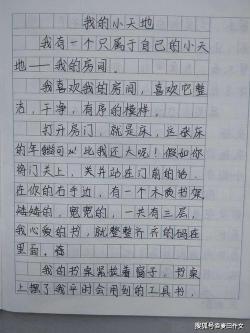 我的小天地
我有一个只属于自己的小天
地——我的房间。
我喜欢我的房间，喜欢它整
洁，干净，有序的模样。
打开房门，就是床，这张床
的年龄可以比我还大呢！假如你
将门关上，关并站在门扇的后，
在你的右手边，有一个木质书架
矮矮的，宽宽的，一共有三层，
我心爱的书，就整整齐齐的码在
里面，
我的书桌紧挨着窗子。书桌
上摆了我平时会用到的工具书，
搜狐号@麦三作文